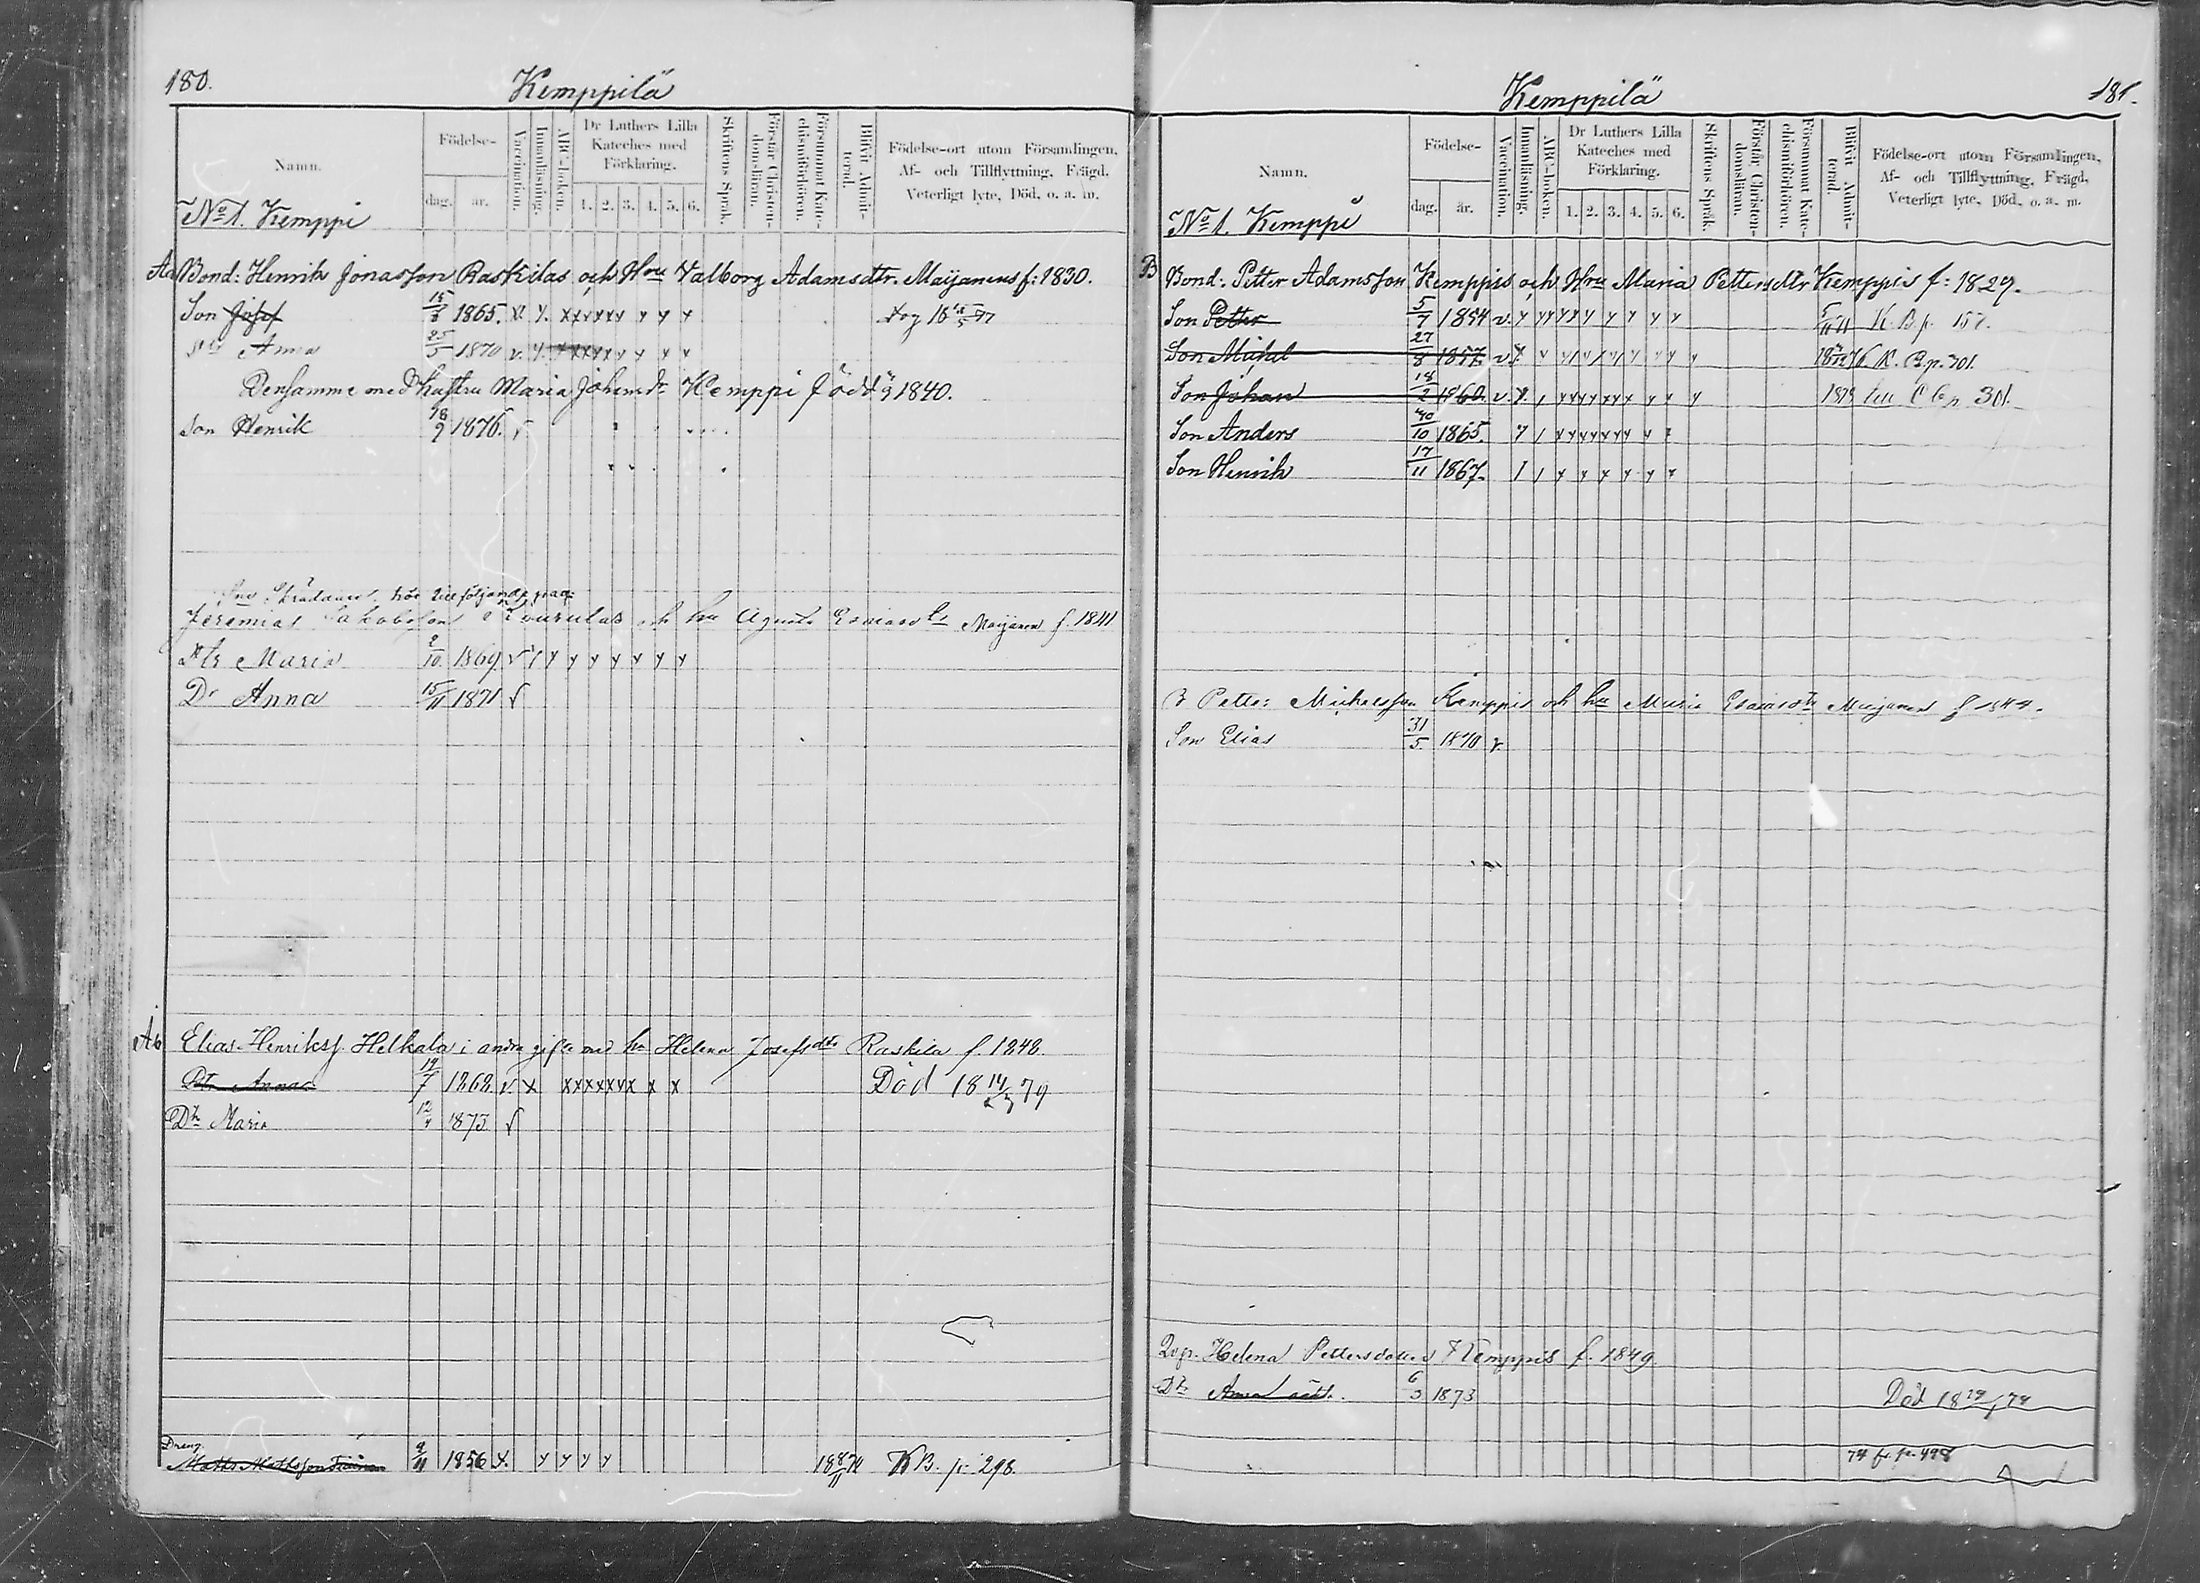 180.
Kemppilä
Namn.
Födelse-
dag.
år.
Vaccination.
Innanläsning.
ABC-boken.
Dr Luthers Lilla
Kateches med
Förklaring.
1. 2. 3. 4. 5. 6.
Skriftens Språk.
Förstår Christen-
domsläran.
Försummat Kate-
chismiförhören.
Blifvit Admit-
terad.
Födelse-ort utom Församlingen,
Af- och Tillflyttning, Frägd,
Veterligt lyte, Död, o. a. m.
No 1. Kemppi
Aa Bond: Henrik Jonasson Raskilas och Hru Valborg Adamsdtr. Maijanens f: 1830.
Son Josef 1865. v. y. x x x x x y y y y
Anna 25/5 1870 v. y.
Densamme med hustru Maria Johansdr Kemppi född 1840.
Son Henrik 18/9 1876. v
hör till följande
Jeremias Jakobsson och hru Esaiasdr Maijanen f. 1841
Dtr Maria 2/10 1869 v y y y y y y y
Dr Anna 15/11 1871 v
Ab Elias Henrikss. Helkala i andra gifte med hu Helena Josefsdtr Raskila f. 1848.
Dtr Anna 1868 v. x x x x x x x x x x Död 18 79
Dtr Maria 1873 v
Dreng
Matts Mattsson 9/11 1856 v. y y y y KB. p. 298.
Kemppilä
181.
Namn.
Födelse-
dag.
år.
Vaccination.
Innanläsning.
ABC-boken.
Dr Luthers Lilla
Kateches med
Förklaring.
1. 2. 3. 4. 5. 6.
Skriftens Språk.
Förstår Christen-
domsläran.
Försummat Kate-
chismiförhören.
Blifvit Admit-
terad.
Födelse-ort utom Församlingen,
Af- och Tillflyttning, Frägd,
Veterligt lyte, Död, o. a. m.
No 1. Kemppi
B Bond: Petter Adamsson Kemppis och Hru Maria Pettersdtr Kemppis f: 1829.
Son Petter 5/7 1854 v. y y y y y y y y y K. B. p. 157.
Son Mickel 27/8 1857. v. K. B. p. 301.
Son Johan 18/2 1860. v. 301.
Son Anders 1865. y / x x x x x x x x x
Son Henrik 17/11 1867. / / y y y y y y
B Petter Mickelsson Kemppis och hu Maria Esaiasdtr Maijanen
Son Elias 31/5 1870 v
Helena Pettersdotter Kemppis f. 1849
Dtr Anna 1873 Död 18 74
74 fr. p. 498